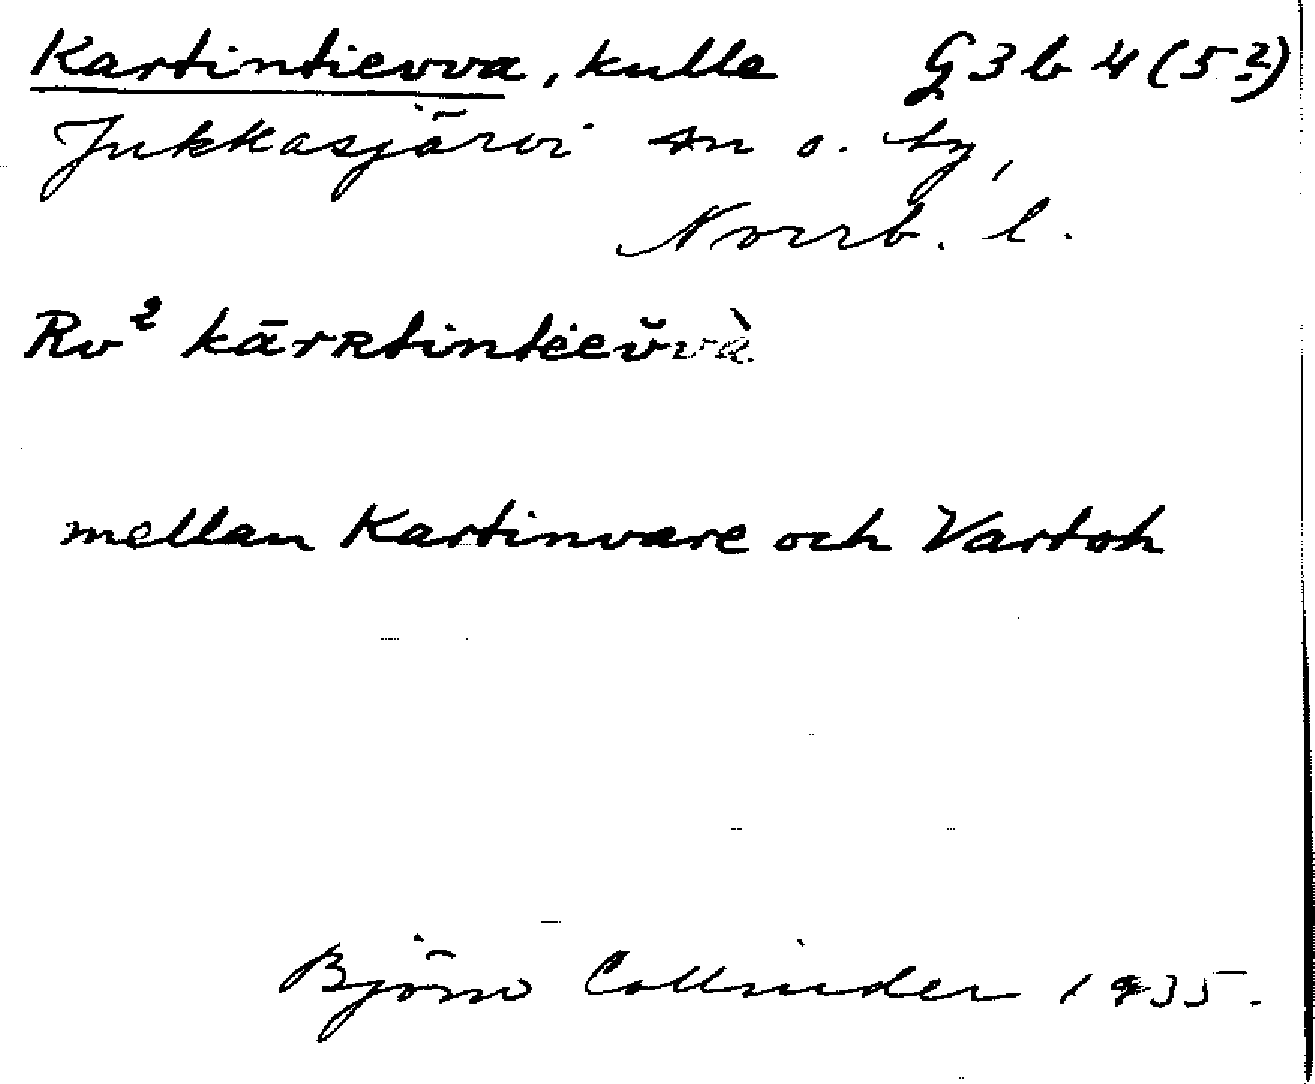 Kartintievva, kulle G3b4(5?)
Jukkasjärvi sn o. by,
Norrb. l.
Rv² kārʀtintiev̆và
mellan Kartinvare och Vartoh
Björn Collinder 1935.